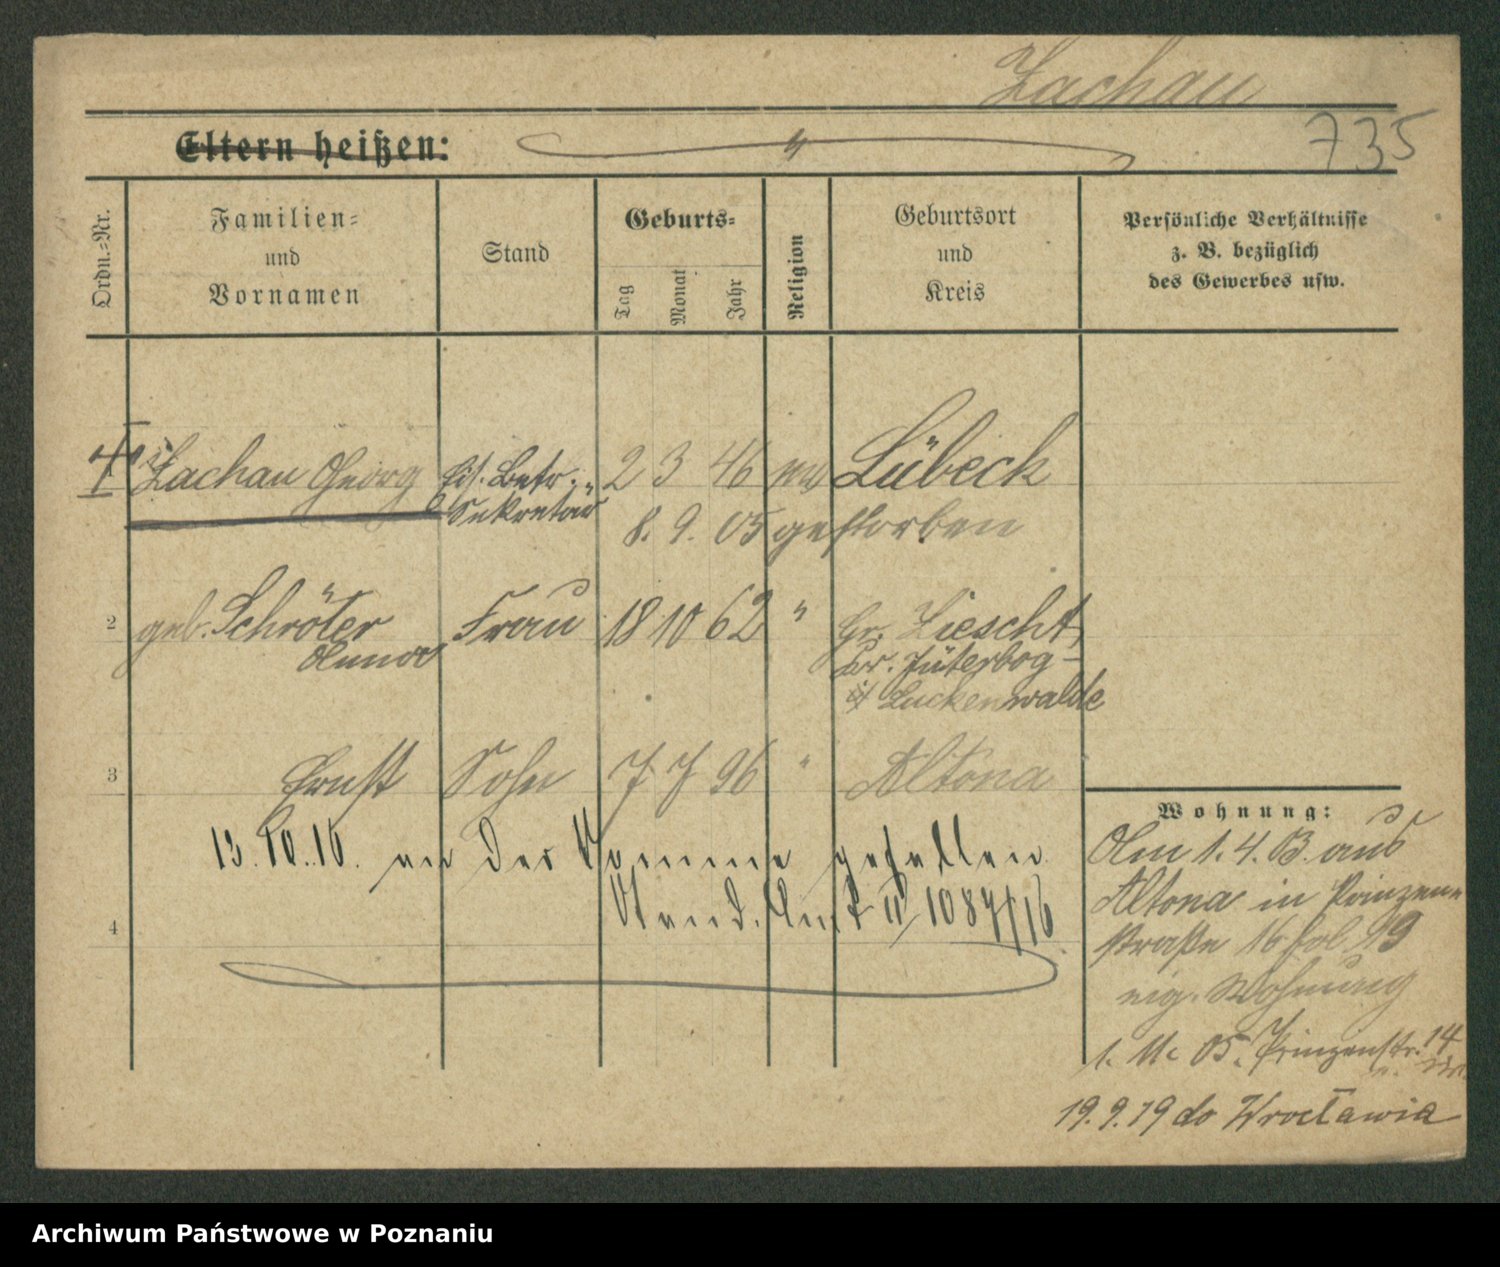 Zachau
735
Eltern heißen:
Ordn.-Nr.
Familien- und Vornamen
Stand
Geburts-
Tag Monat Jahr
Religion
Geburtsort und Kreis
Persönliche Verhältnisse z. B. bezüglich des Gewerbes usw.
Zachau Georg Eis. Betr.- 2 3 46 Lübeck
Sekretär 8. 9. 05 gestorben
2 geb. Schröter Frau 18 10 62 " Gr. Ziescht
Kr. Jüterbog-
Luckenwalde
3 Ernst Sohn 7 7 96 " Altona
13. 10. 16. an der Somme gefallen
4 Stand. Amt II/1084/16
Wohnung:
1. 4. 03. aus
Altona in Prinzen-
straße 16
eig. Wohnung
1. 11. 05. Prinzenstr. 14
19. 9. 19 do Wrocławia
Archiwum Państwowe w Poznaniu